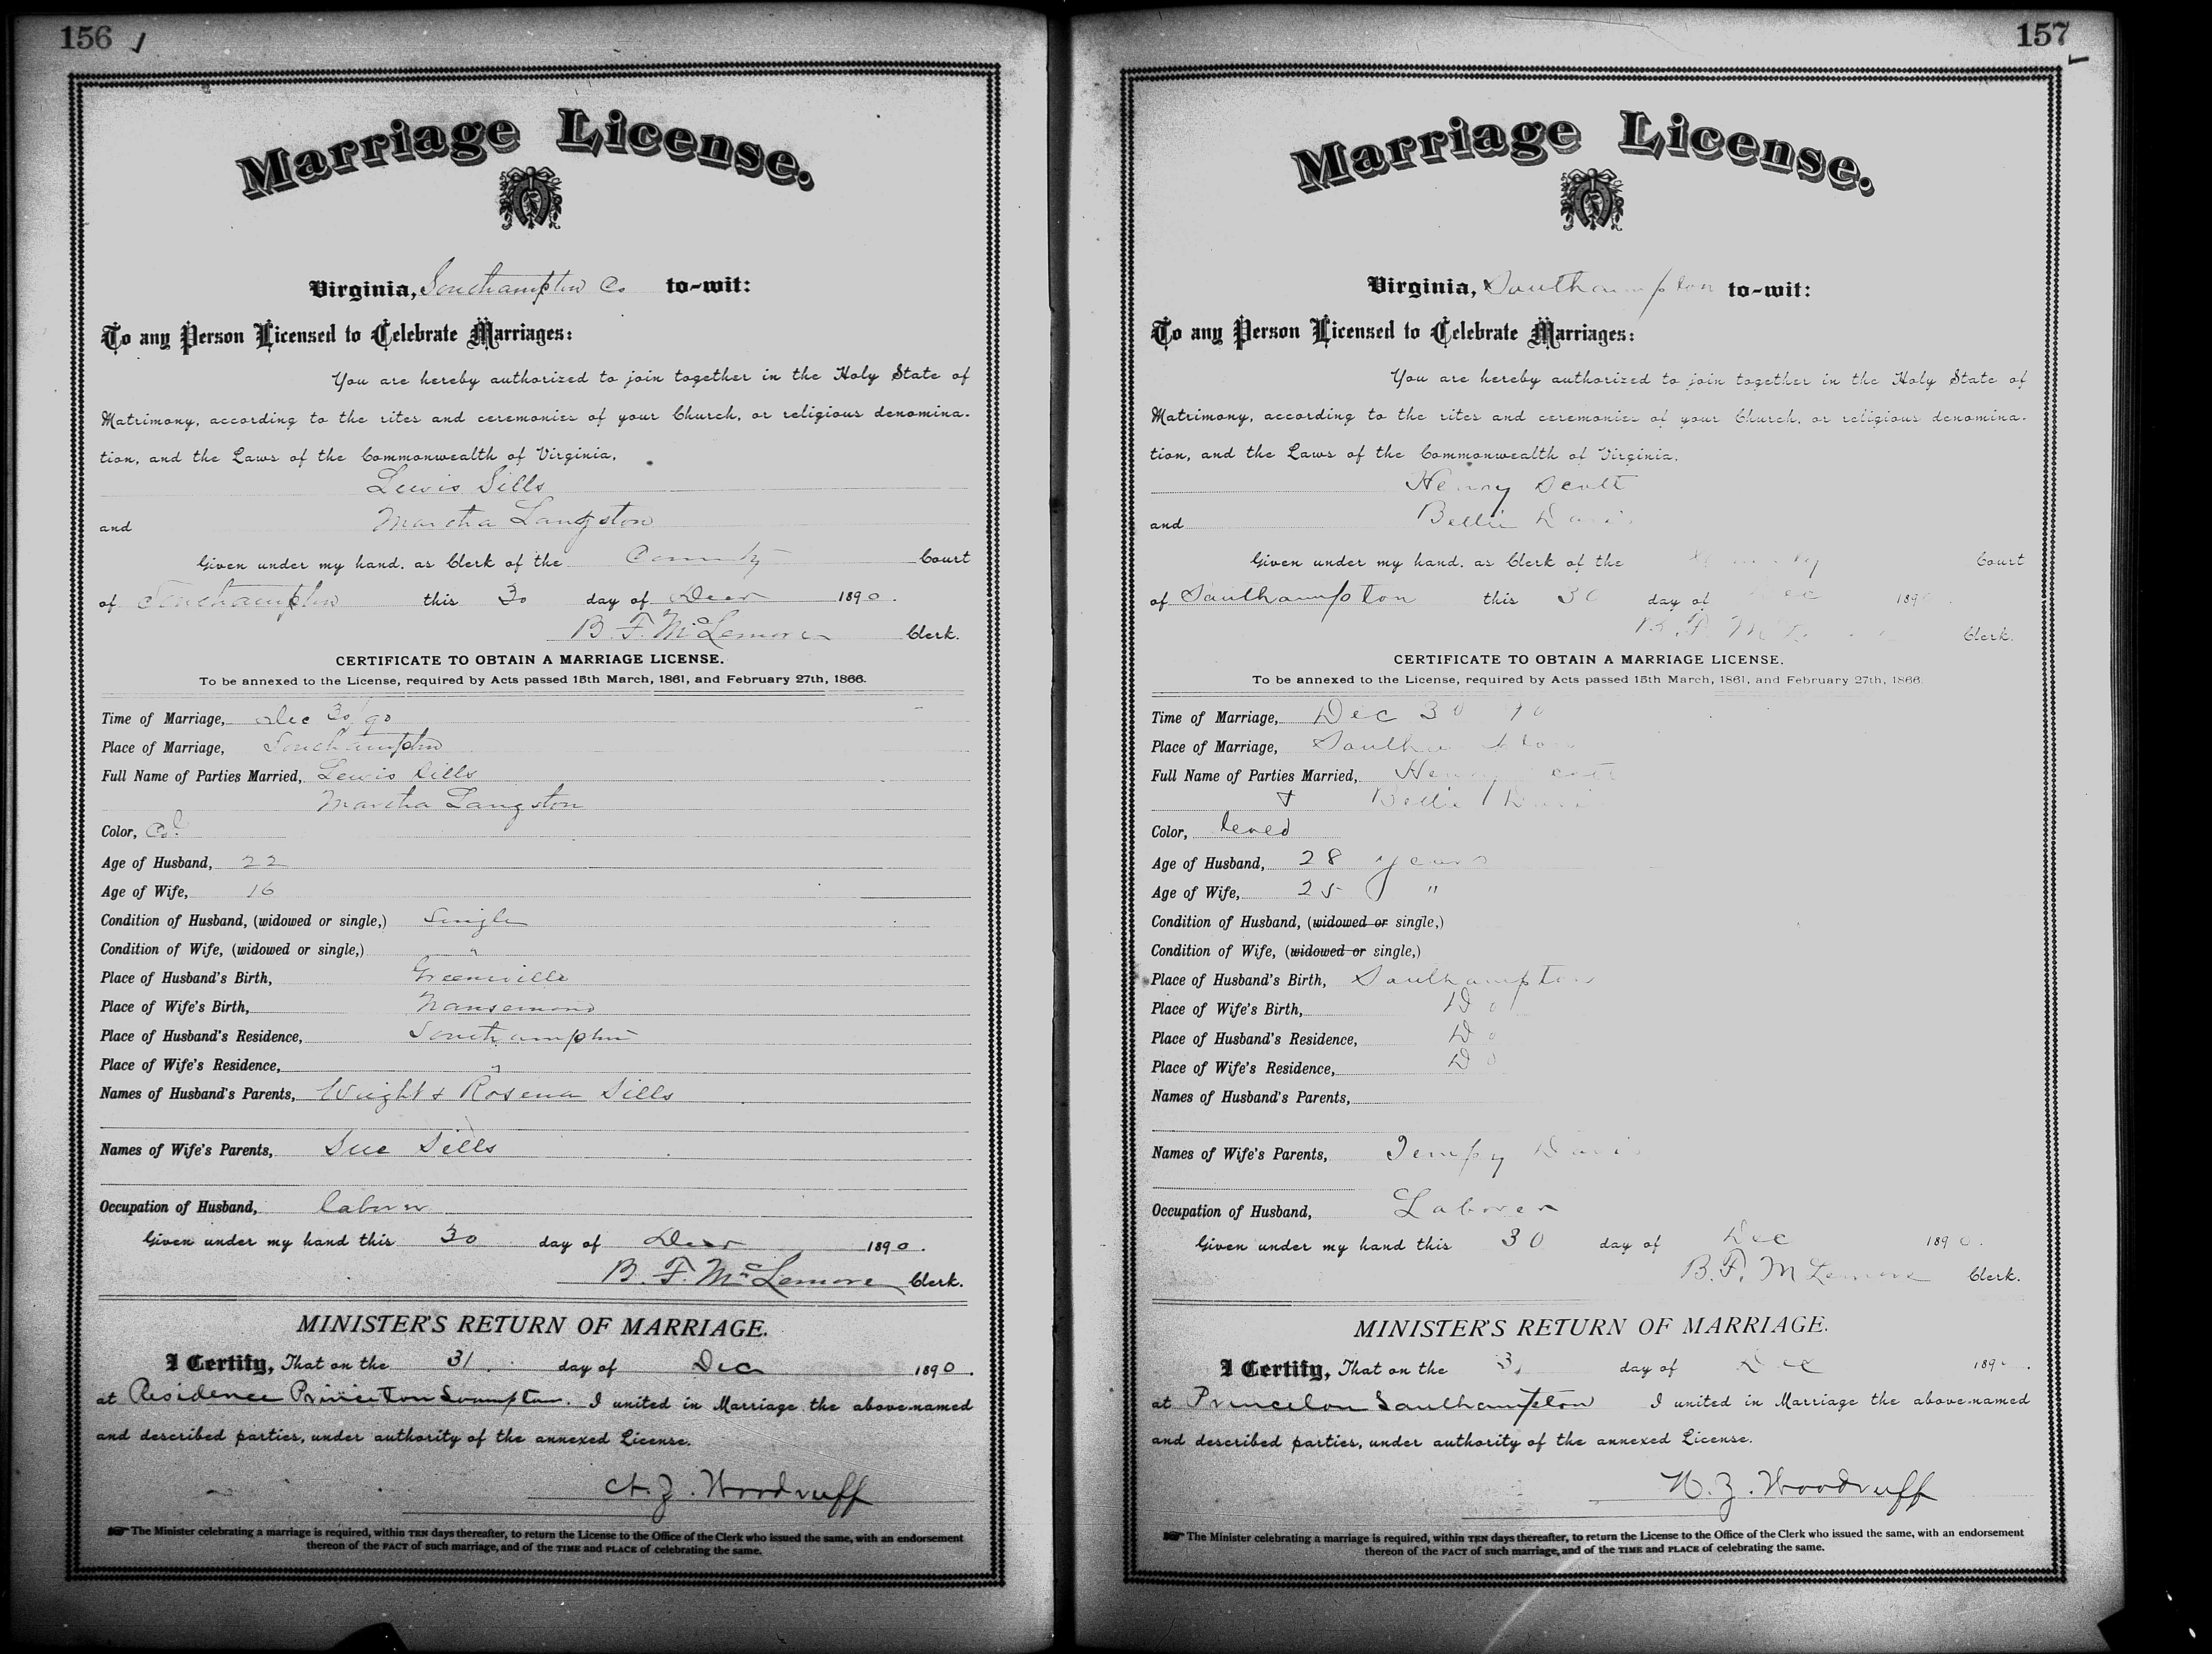 156
Marriage License.
Virginia, Southampton Co to-wit:
To any Person Licensed to Celebrate Marriages:
You are hereby authorized to join together in the Holy State of
Matrimony, according to the rites and ceremonies of your Church, or religious denomina-
tion, and the Laws of the Commonwealth of Virginia,
Lewis Sills
and Martha Langston
Given under my hand, as Clerk of the County Court
of Southampton this 30 day of Decr 1890.
B. F. McLemore Clerk.
CERTIFICATE TO OBTAIN A MARRIAGE LICENSE.
To be annexed to the License, required by Acts passed 15th March, 1861, and February 27th, 1866.
Time of Marriage, Dec 30/90
Place of Marriage, Southampton
Full Name of Parties Married, Lewis Sills
Martha Langston
Color, Cold
Age of Husband, 22
Age of Wife, 16
Condition of Husband, (widowed or single,) Single
Condition of Wife, (widowed or single,) "
Place of Husband's Birth, Greenville
Place of Wife's Birth, Nansemond
Place of Husband's Residence, Southampton
Place of Wife's Residence, "
Names of Husband's Parents, Wright & Rosena Sills
Names of Wife's Parents, Sue Sills
Occupation of Husband, laborer
Given under my hand this 30 day of Decr 1890.
B. F. McLemore Clerk.
MINISTER'S RETURN OF MARRIAGE.
I Certify, That on the 31 day of Dec 1890.
at Residence Princeton Sounpton. I united in Marriage the above-named
and described parties, under authority of the annexed License.
Z. Woodruff
The Minister celebrating a marriage is required, within TEN days thereafter, to return the License to the Office of the Clerk who issued the same, with an endorsement
thereon of the FACT of such marriage, and of the TIME and PLACE of celebrating the same.
157
Marriage License.
Virginia, Southampton to-wit:
To any Person Licensed to Celebrate Marriages:
You are hereby authorized to join together in the Holy State of
Matrimony, according to the rites and ceremonies of your Church, or religious denomina-
tion, and the Laws of the Commonwealth of Virginia,
Henry Scott
and Bettie Davis
Given under my hand, as Clerk of the County Court
of Southampton this 30 day of Dec 1890.
B. F. McL Clerk.
CERTIFICATE TO OBTAIN A MARRIAGE LICENSE.
To be annexed to the License, required by Acts passed 15th March, 1861, and February 27th, 1866.
Time of Marriage, Dec 30 90
Place of Marriage, Southampton
Full Name of Parties Married, Henry Scott
& Bettie Davis
Color,
Age of Husband, 28 years
Age of Wife, 25 "
Condition of Husband, (widowed or single,)
Condition of Wife, (widowed or single,)
Place of Husband's Birth, Southampton
Place of Wife's Birth, Do
Place of Husband's Residence, Do
Place of Wife's Residence, Do
Names of Husband's Parents,
Names of Wife's Parents, Tempy Davis
Occupation of Husband, Laborer
Given under my hand this 30 day of Dec 1890.
B. F. McLemore Clerk.
MINISTER'S RETURN OF MARRIAGE.
I Certify, That on the day of Dec 189
at Princeton Southampton I united in Marriage the above-named
and described parties, under authority of the annexed License.
Z. Woodruff
The Minister celebrating a marriage is required, within TEN days thereafter, to return the License to the Office of the Clerk who issued the same, with an endorsement
thereon of the FACT of such marriage, and of the TIME and PLACE of celebrating the same.